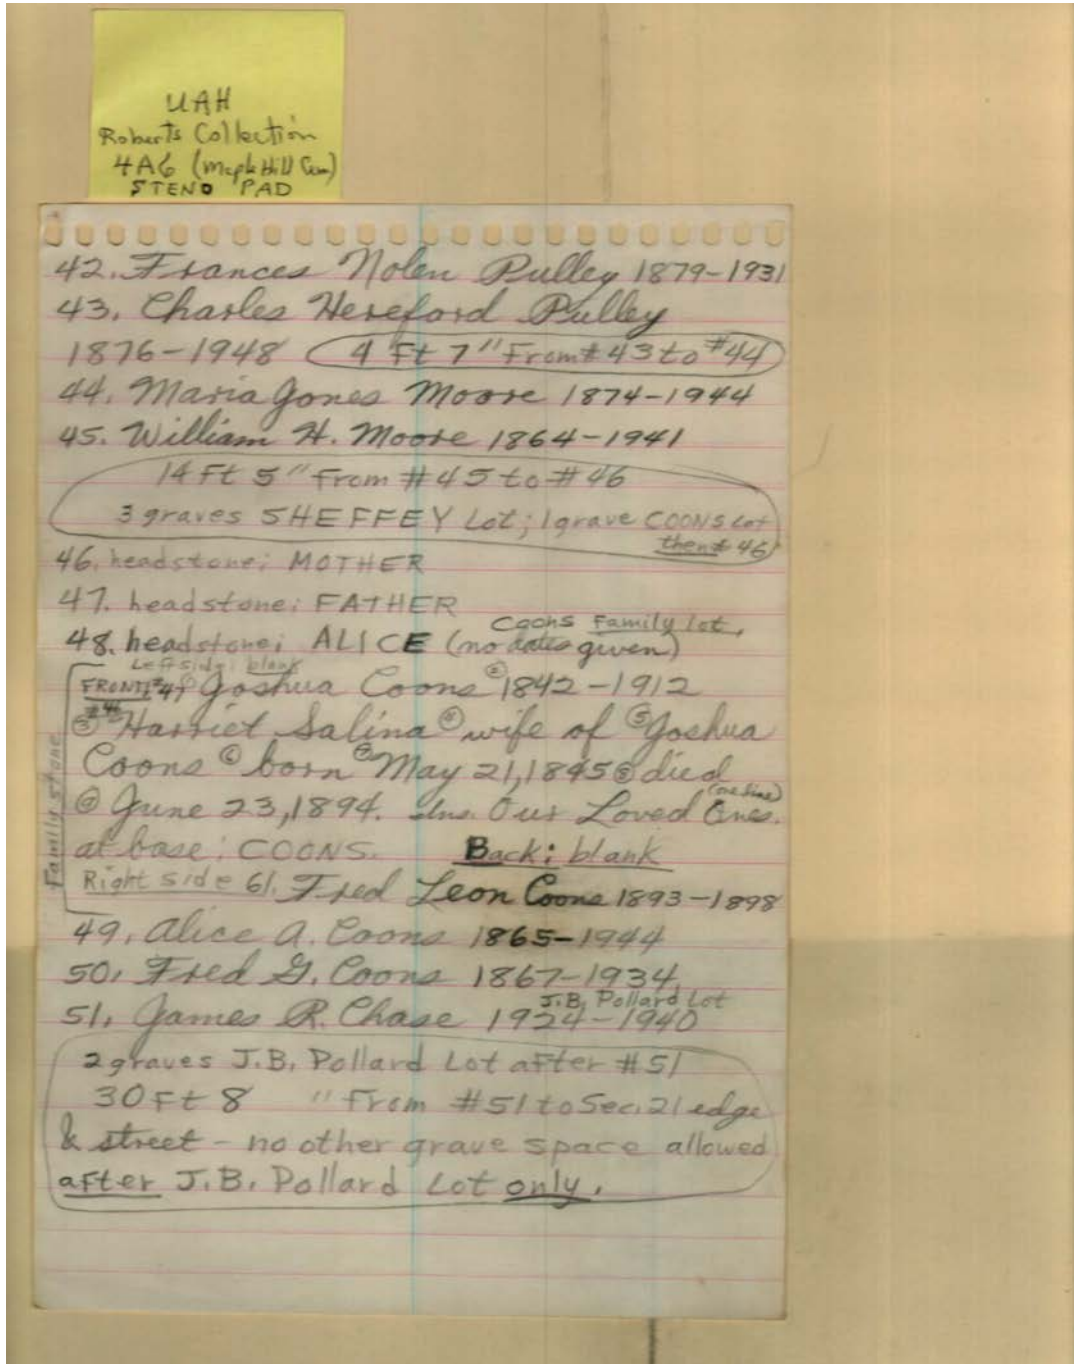 UAH
Roberts Collection
4A6 (Maple Hill Cem)
STENO PAD
42. Frances Nolen Pulley 1879-1931
43. Charles Hereford Pulley
1876-1948 4 Ft 7" From #43 to #44
44. Maria Jones Moore 1874-1944
45. William H. Moore 1864-1941
14 Ft 5" From #45 to #46
3 graves SHEFFEY Lot; 1 grave COONS Lot
then # 46
46. headstone: MOTHER
47. headstone: FATHER
Coons Family lot.
48. headstone: ALICE (no dates given)
Left side: blank
FRONT: #47 ① Joshua Coons ② 1842-1912
#46
③ Harriet Salina ④ wife of ⑤ Joshua
Coons ⑥ born ⑦ May 21, 1845 ⑧ died
(one line)
⑨ June 23, 1894. Ins. Our Loved Ones.
at base: COONS. Back: blank
Family stone
Right side 61. Fred Leon Coons 1893-1898
49. Alice A. Coons 1865-1944
50. Fred G. Coons 1867-1934
J.B. Pollard Lot
51. James R. Chase 1924-1940
2 graves J.B. Pollard Lot after #51
30 Ft 8 " From #51 to Sec. 21 edge
& street - no other grave space allowed
after J.B. Pollard Lot only.